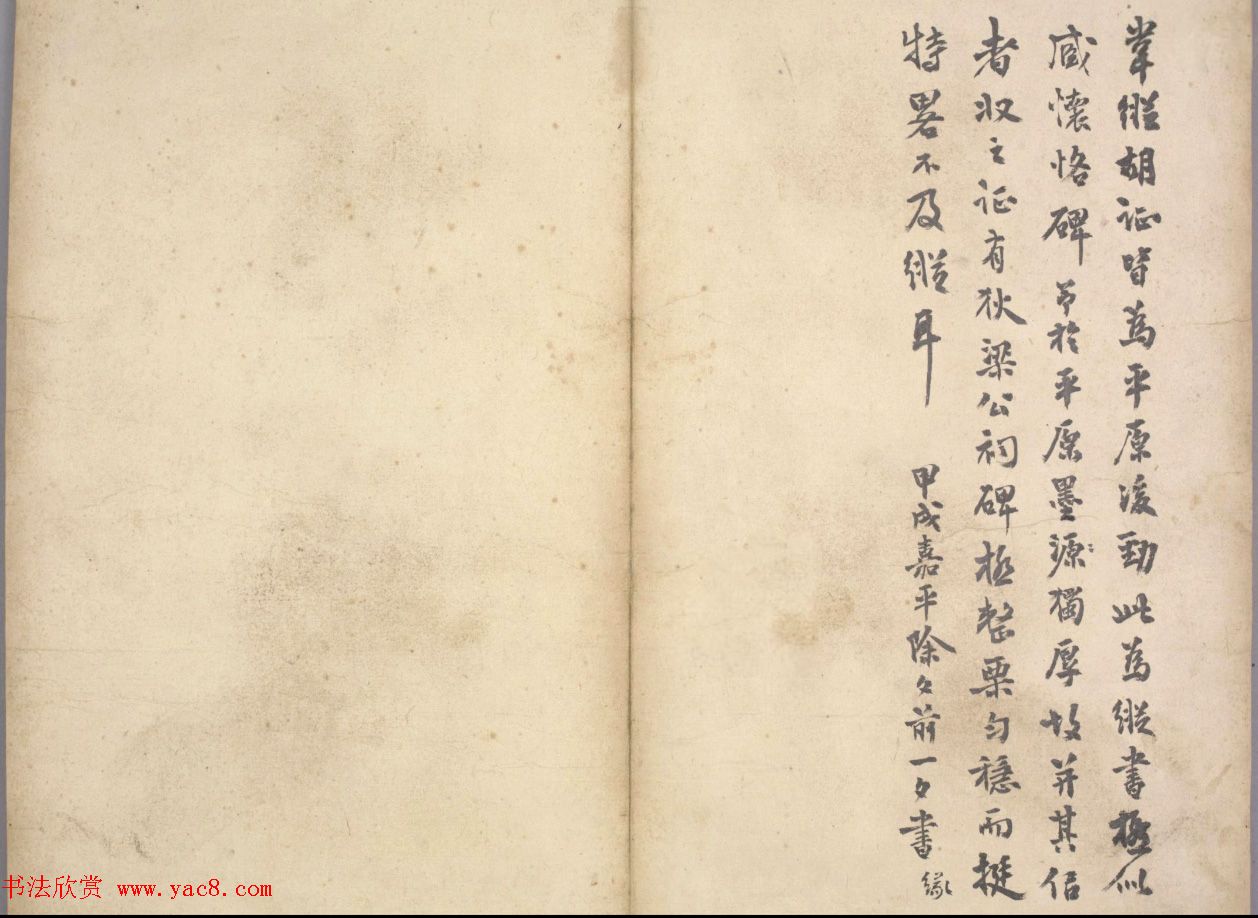 韋縱胡証皆為平原後勁此為縱書極似
臧懷恪碑予於平原墨源獨厚故并其佀
者収之証有狄梁公祠碑極整栗勻穩而挺
特畧不及縱耳
甲戌嘉平除夕前一夕書
书法欣赏 www.yac8.com